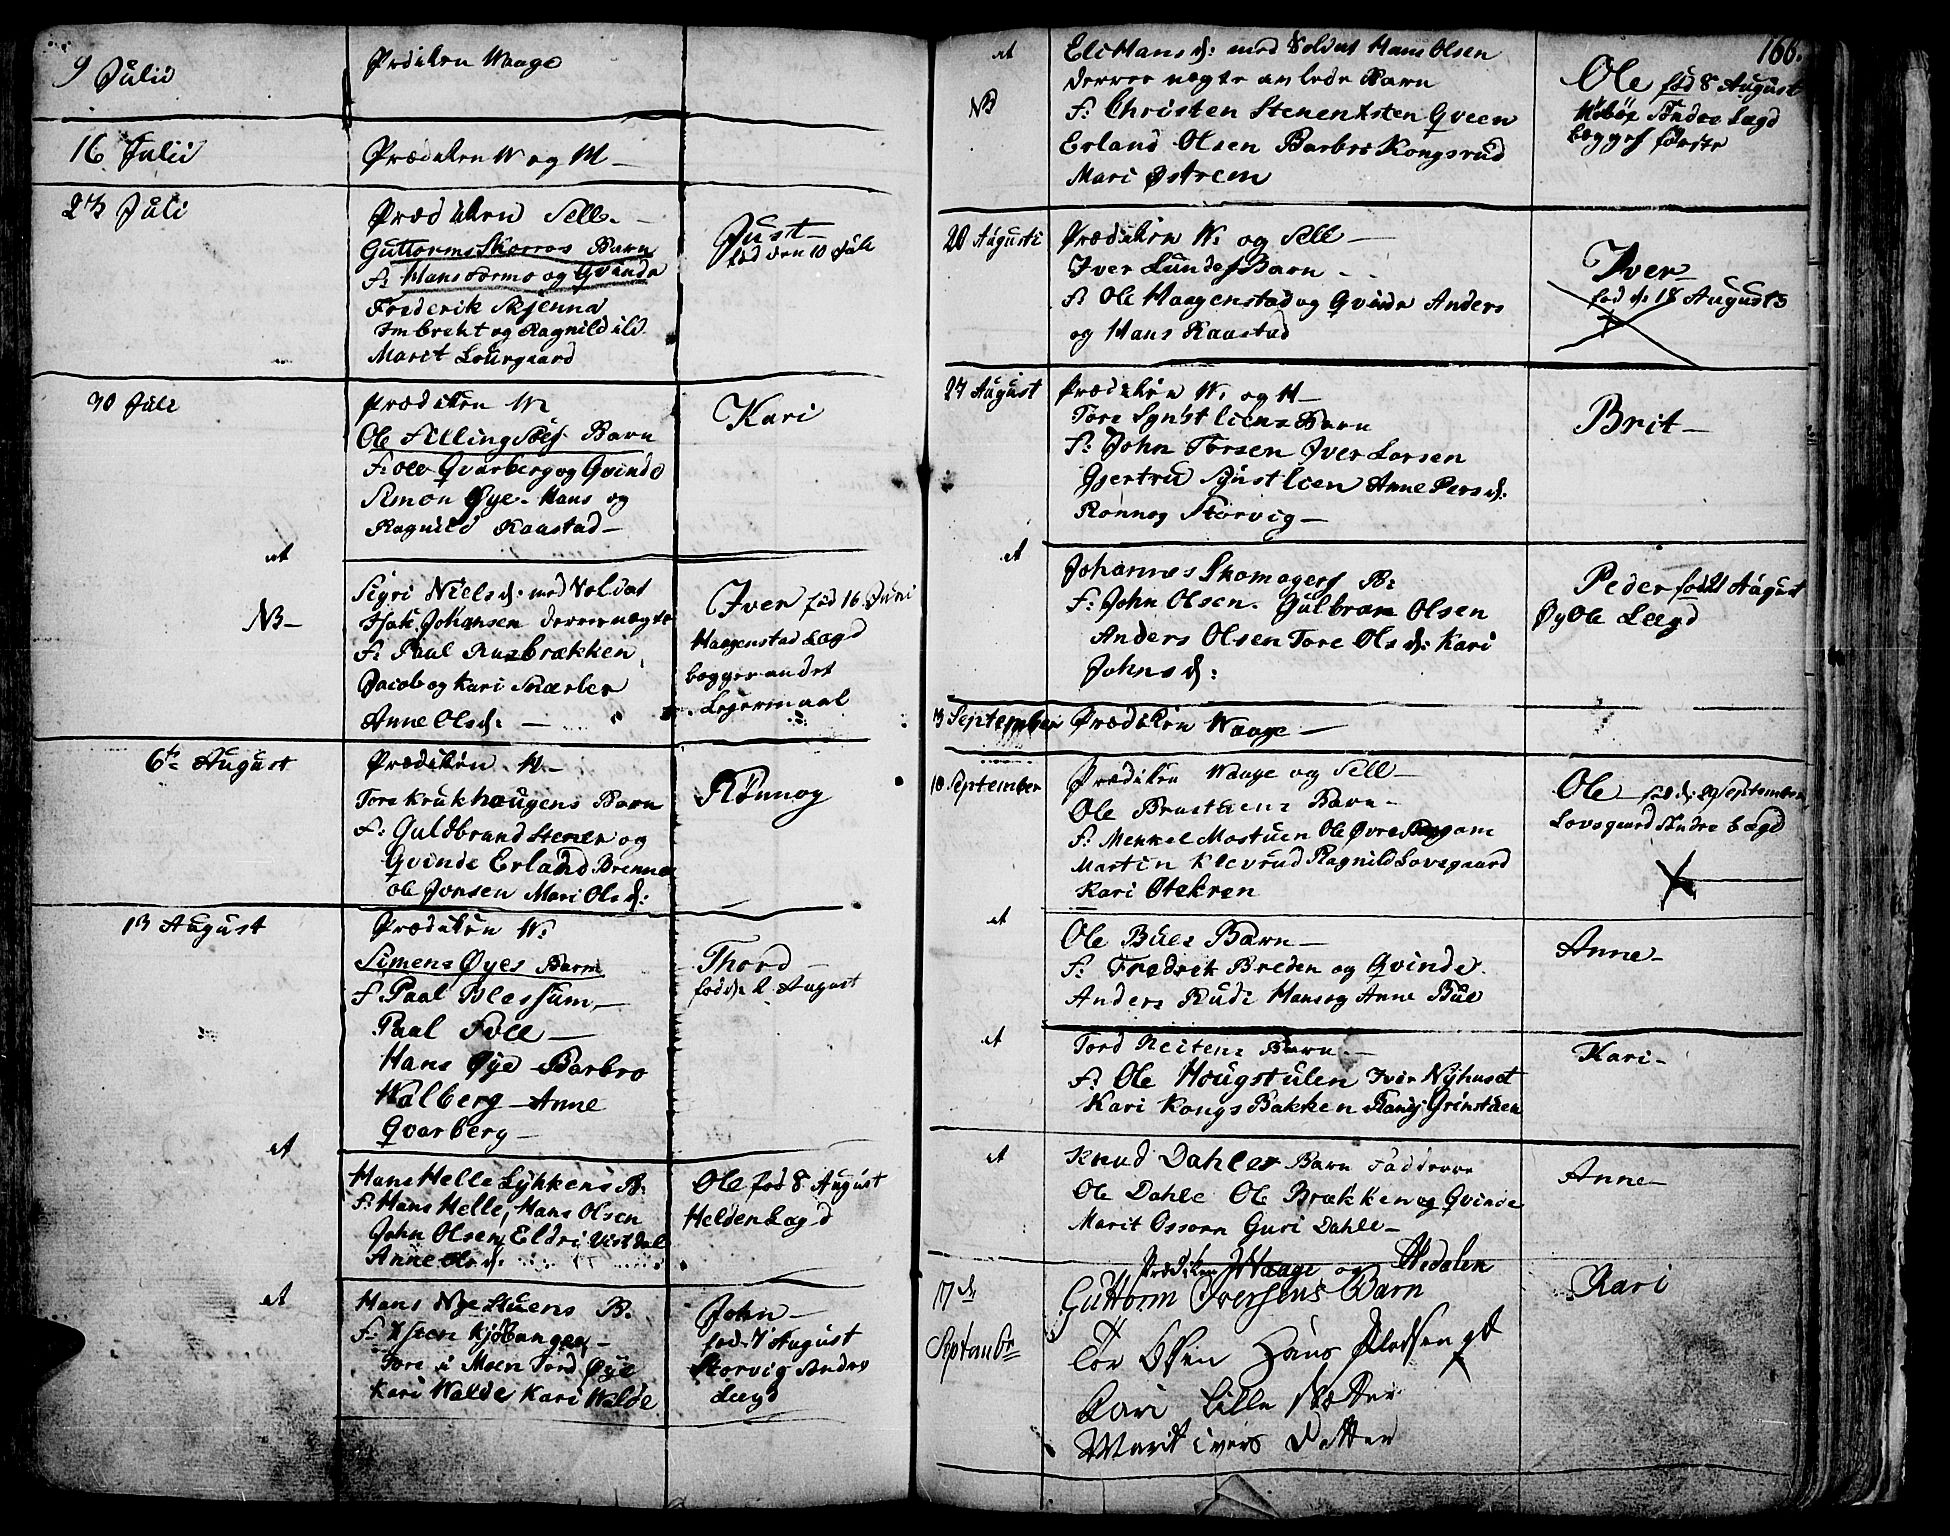 9 Julii
Prædiken Waage
16 Julii
Prædiken W og M
23 Juli
Prædiken Sell
Guttorms Skorros Barn
F. Hans Formo og Qvinde
Frederik Skjenna
Imbreht og Ragnild ild
Marit Lourgaard
Just
fød den 10 Juli
30 Juli
Prædiken W.
Ole Selling Barn
F. Ole Qvarberg og Qvinde
Simon Øye. Hans og
Ragnild Kaastad
Kari
et
NB
Sigri Niels d. med Soldat
Isak Johansen derrernægte
F. Paul Rusbrækken,
Jacob og Kari Snærler
Anne Ols d.
Iver fød 16 Juni
Haagenstad Lægd
begger andet
Lejermaal
6te August
Prædiken H
Tore Krukhougens Barn
F. Guldbrand Stenen og
Qvinde Erland Brenna
Ole Jonsen Mari Ols d.
Rönnog
13 August
Prædiken W.
Simens Øyes Barn
F. Paal Blessum
Paal Svee
Hans Øye Barbro
Walberg Anne
Qvarberg
Thord
fød d. 2 August
et
Hans Helle Lykkens B.
F. Hans Helle, Hans Olsen
John Olsen Eldri Vistdal
Anne Ols d.
Ole fød 8 August
Helden Lægd
et
Hans Nye Stuens B.
F.
Tore i Moen Tord Øye
Kari Walde Kari Walde
John
fød 7 August
Storvig Andre
Lægd
166.
et
NB
Eli Hans d. med Soldat Hans Olsen
derrer nægte an lede Barn
F. Christen Stenersten Qveen
Erland Olsen Barbro Kongsrud
Mari Østrem
Ole fød 8 August
Søndre Lægd
Lægges første
20 Augusti
Prædiken W. og Sell
Iver Lundes Barn
F. Ole Haagenstad og Qvinde Anders
og Hans Kaastad
Iver
fød d. 18 Augusts
27 August
Prædiken W. og H
Tore Synstliens Barn
F. John Torsen Iver Larsen
Gjertrud Synstlien Anne Pers d.
Rönnog Storvig
Brit
et
Johannes Skomagers B.
F. John Olsen. Gulbran Olsen
Anders Olsen Tore Ols d. Kari
Johns d.
Peder fød 21 August
Øy Ole Lægd
3 September
Prædiken Waage
10 September
Prædiken Waage og Sell
Ole Brustuens Barn
F. Menkel Mostuen Ole Øvre
Martin Klevrud Ragnild Lovsgaard
Kari Otekren
Ole fød d. September
Lovsgaard Andre Lægd
et
Ole Bues Barn
F. Fredrik Breden og Qvinde.
Anders Rudi Hans og Anne Bue
Anne
et
Tord Reitens Barn
F. Ole Hougstulen Iver Nyhuset
Kari Kongs Bakken Rangj Grinstuen
Kari
et
Knud Dahles Barn Faddererne
Ole Dahle Ole Brækken og Qvinde
Marit Ossorn Guri Dahle
Anne
17 d.
Septembr
Prædiken Waage og Hedalen
Guttorm Iversens Barn
Tor Olsen Hans Pedersen gl
Kari Lille
Marit ivers Datter
Kari